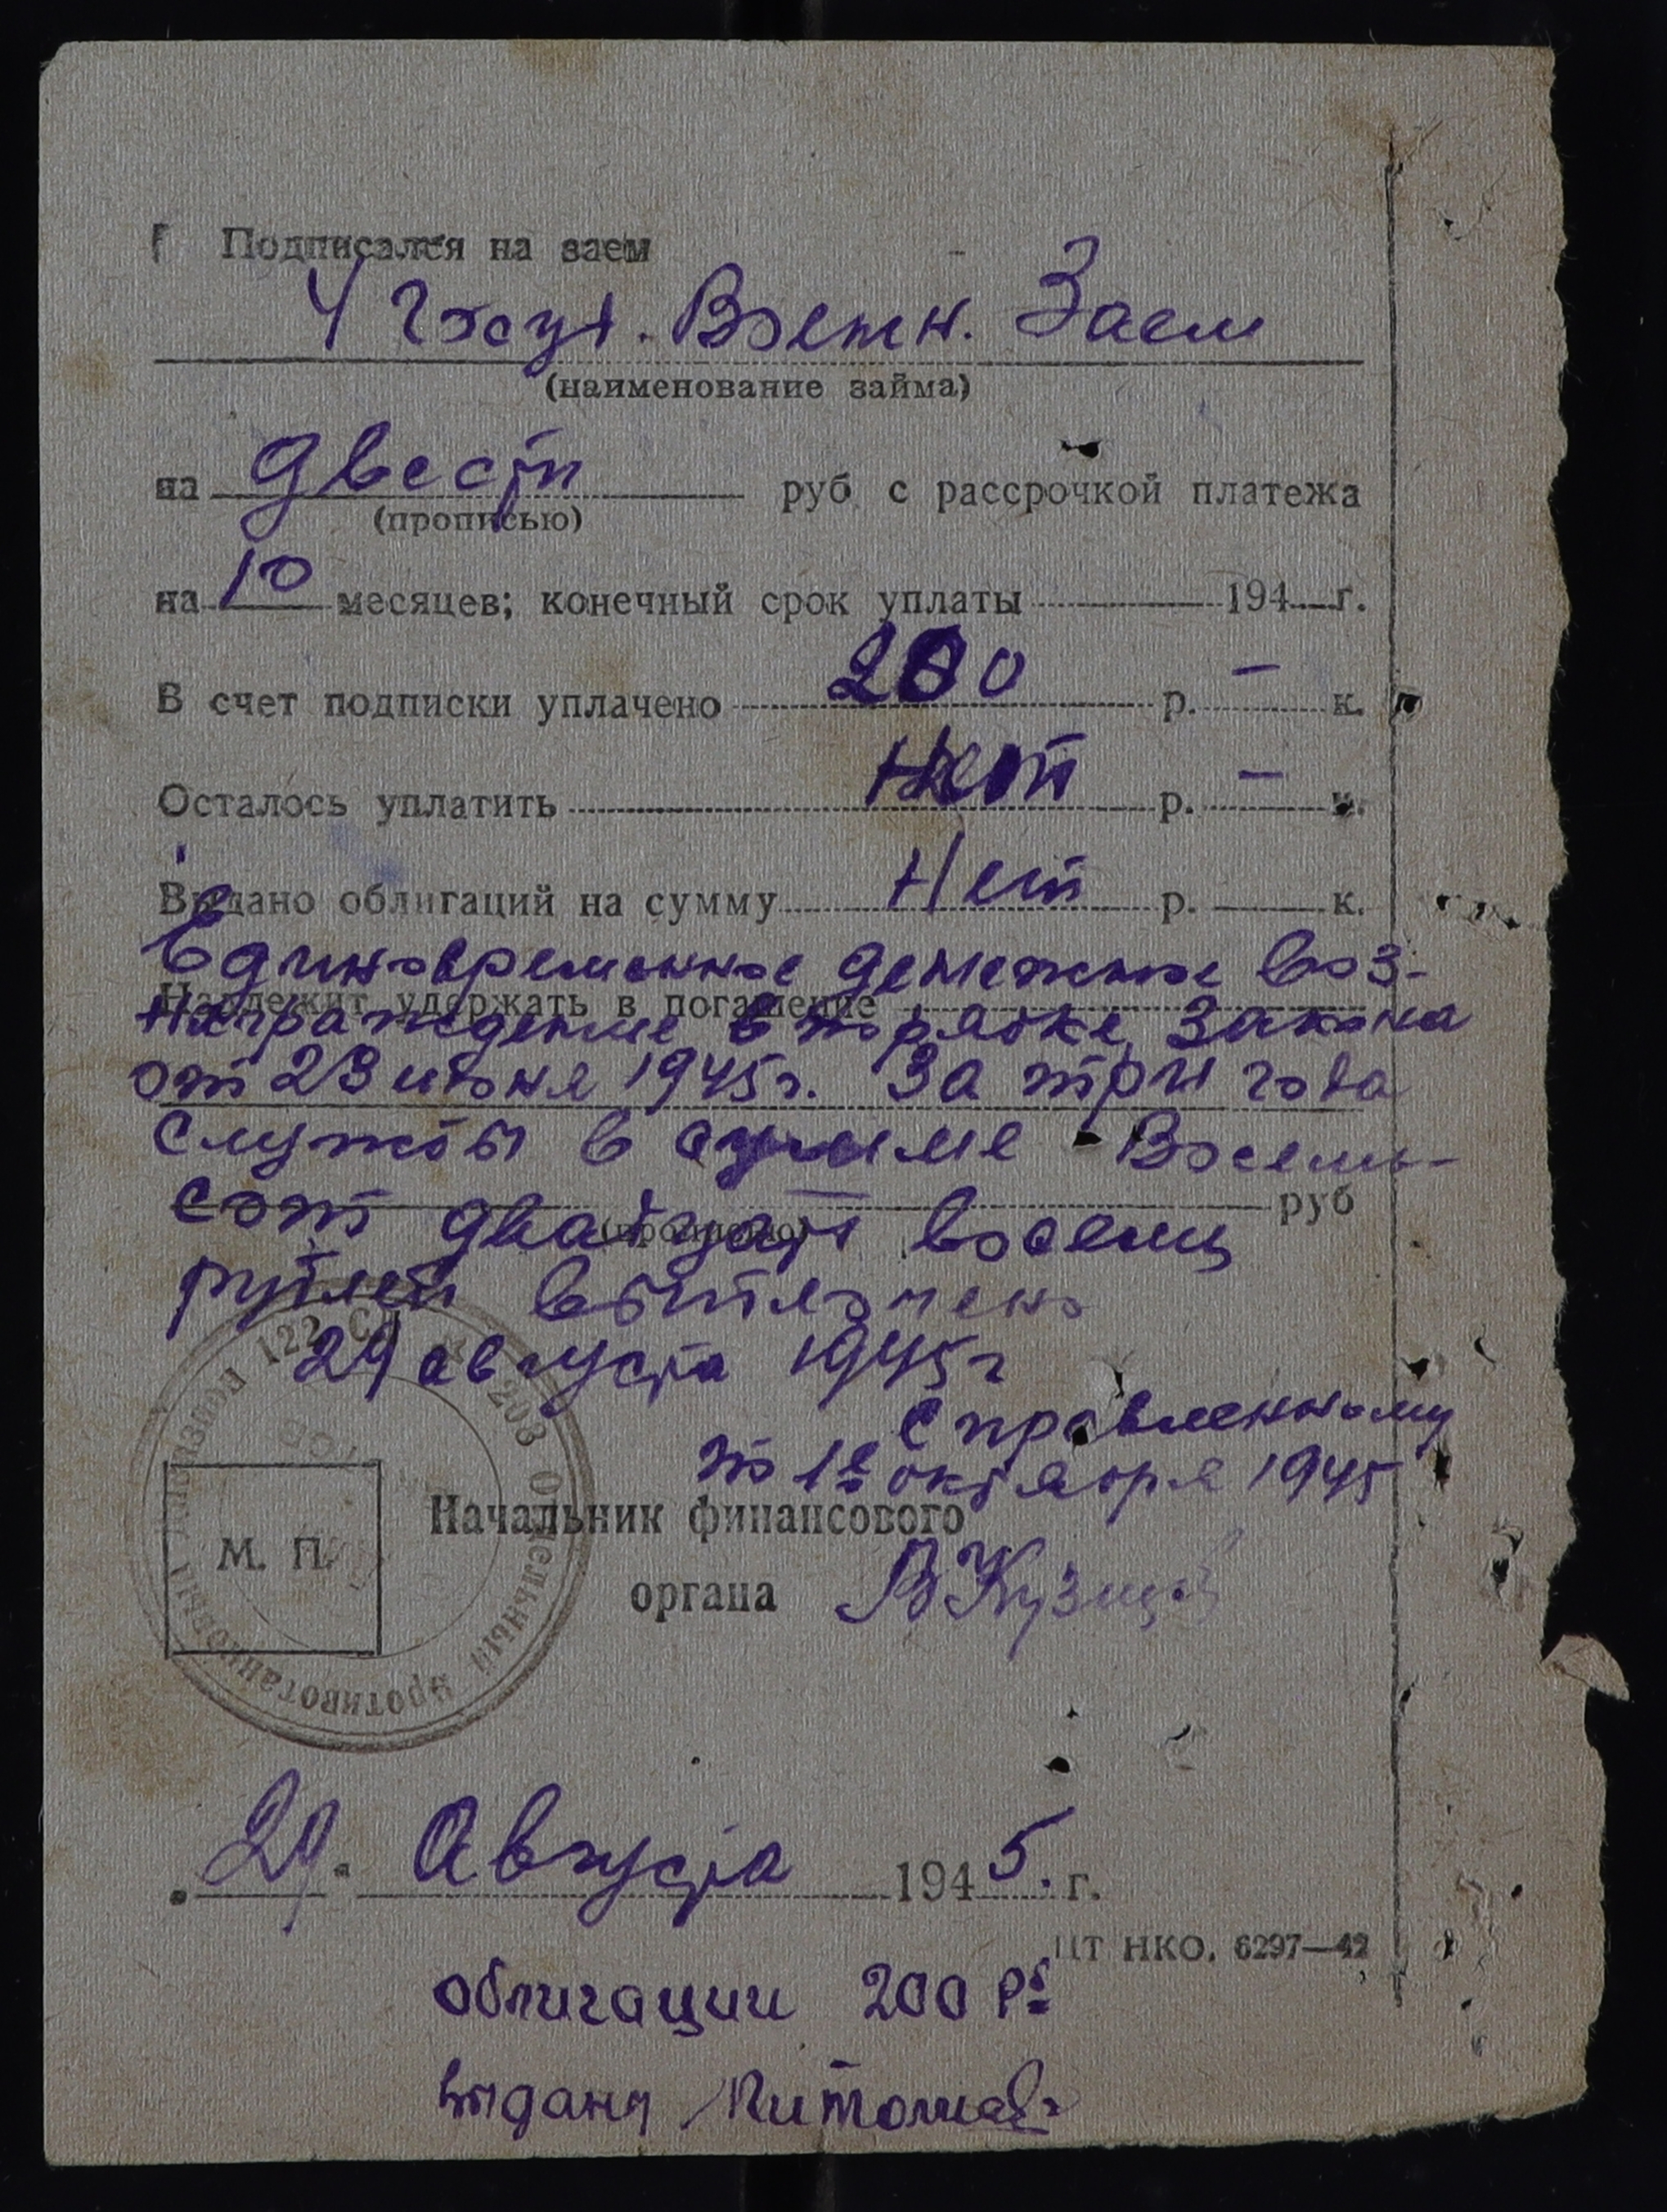 Подписался на заем
4 Госуд. Военн. Заем
(наименование займа)
на двести руб. с рассрочкой платежа
(прописью)
на 10 месяцев; конечный срок уплаты 194 г.
В счет подписки уплачено 200 р. — к.
Осталось уплатить нет р. — к.
Выдано облигаций на сумму Нет р. к.
Единовременное денежное воз-
Надлежит удержать в погашение
награждение в порядке Закона
от 23 июня 1945г. за три года
службы в сумме Восемь-
сот двадцать восемь
руб
(прописью)
рублей выплачено
29 августа 1945 г
с
по 1е октября 1945
203 Отдельный противотанковый дивизион 122 СД
М. П.
Начальник финансового
органа ВКузнецов
29. Августа 1945. г.
ЦТ НКО. 6297—42
облигации 200 рб
выданы